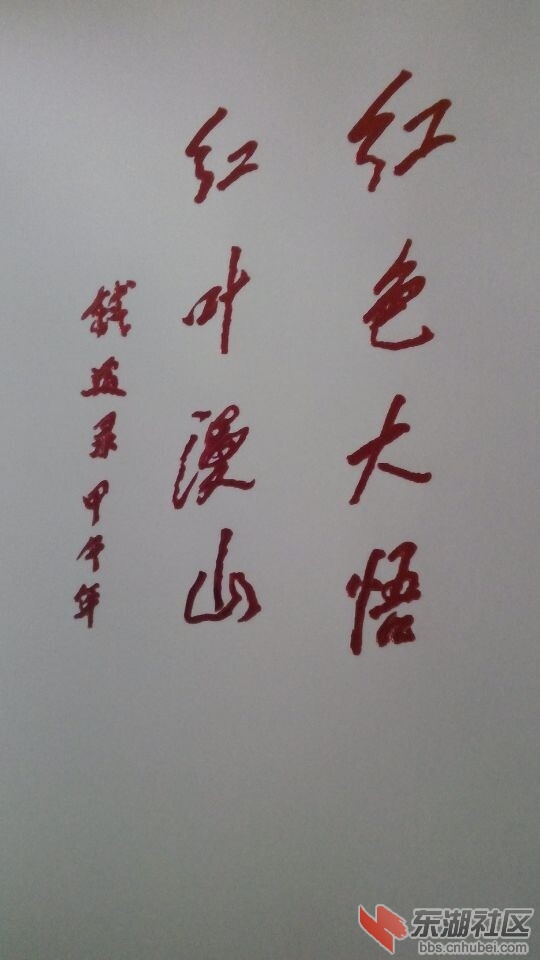 红色大悟
红叶漫山
钱运录 甲午年
东湖社区
bbs.cnhubei.com